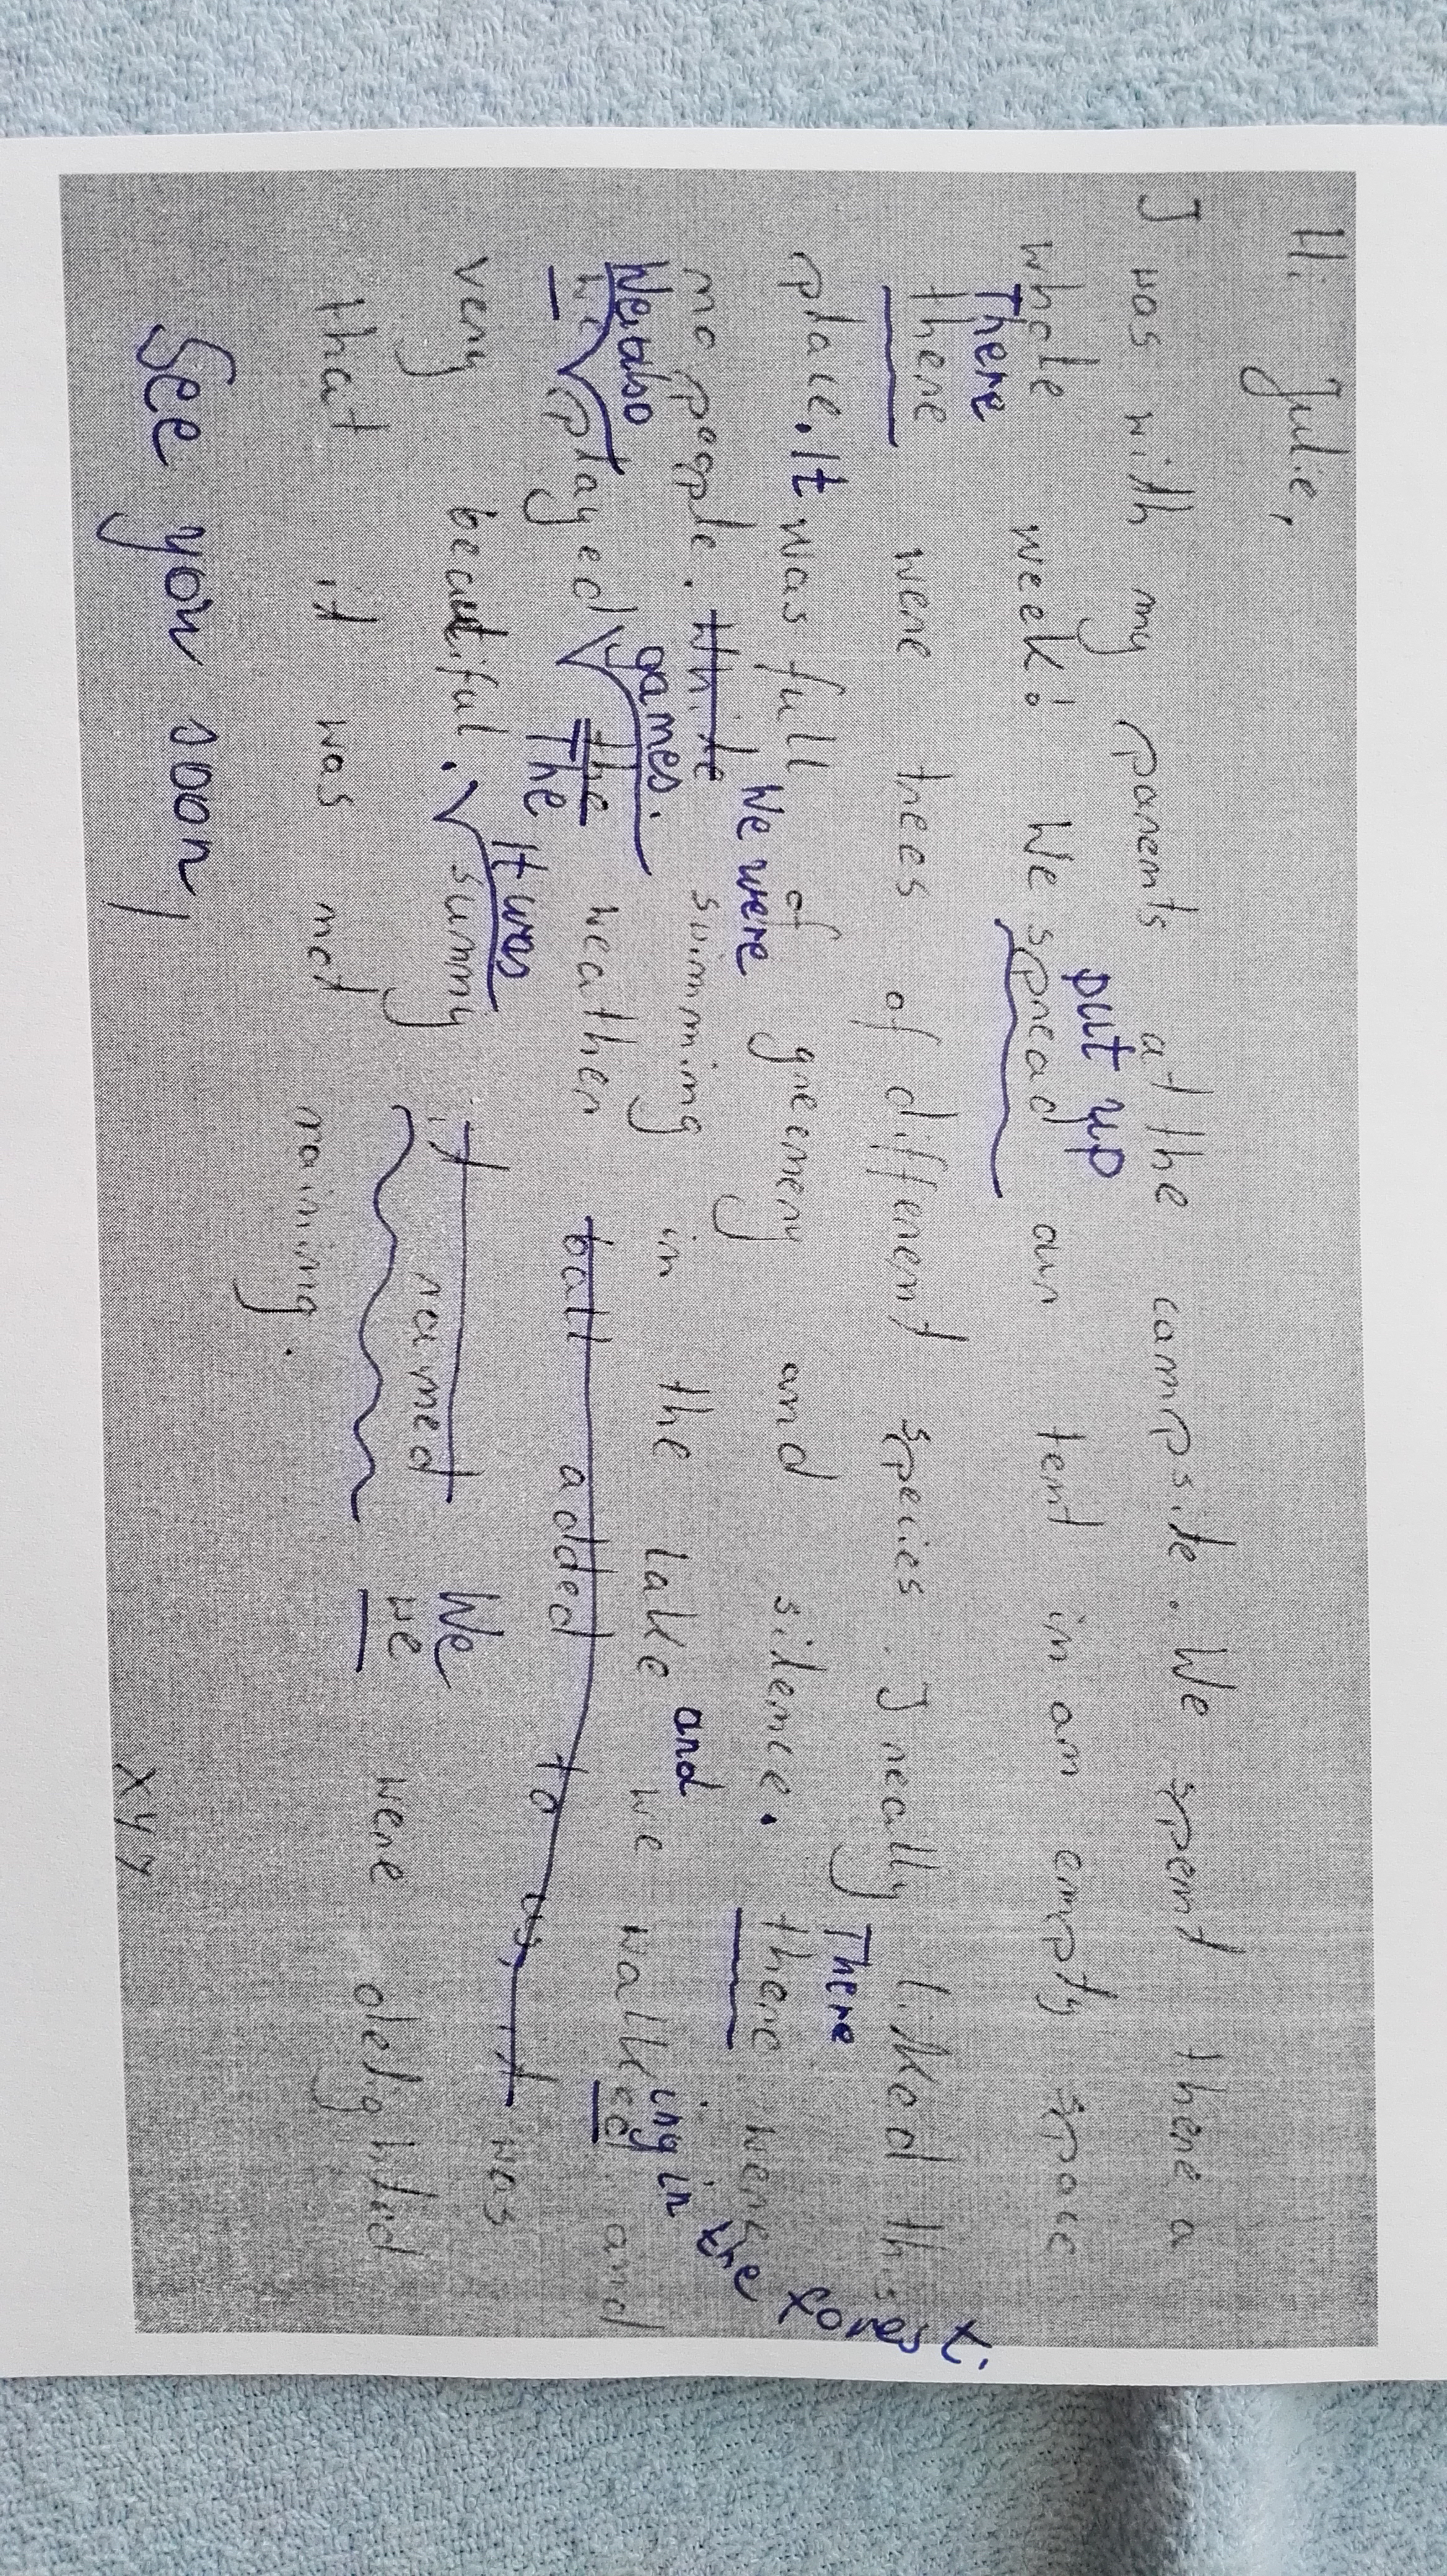 Hi Julie,
I was with my parents at the campsite. We spent there a
put up
whole week! We spread our tent in an empty space
There
there were trees of different species. I really liked this
There
place. It was full of greenery and silence. there were
We were and ing in the forest.
no people. while swimming in the lake we walked and
We also games.
we played the weather ball aded to us, it was
The
It was We
very beautiful. sunny it reamed we were delighted
that it was not raining.
See you soon, XYZ